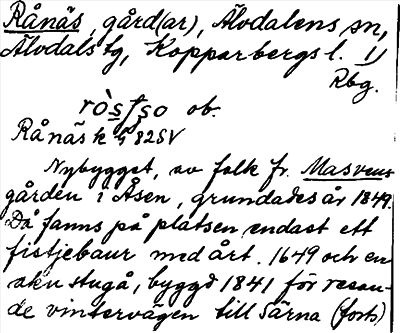 Rånäs, gård(ar), Älvdalens sn,
Älvdals tg, Kopparbergs l. 1)
Rbg.
ob.
Rånäs k G 82 SV
Nybygget, av folk fr. Masvens-
gården i Åsen, grundades år 1849.
Då fanns på platsen endast ett
fistjebaur med årt. 1649 och en
aku stugå, byggd 1841 för resan-
de vintervägen till Särna (forts)